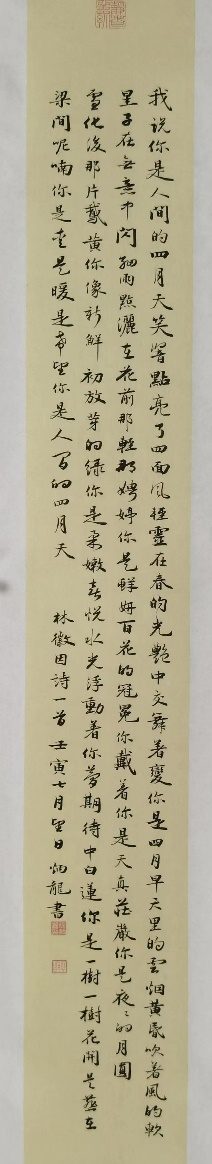 我说你是人间的四月天笑響點亮了四面風軽靈在春的光艷中交舞着變你是四月早天里的雲烟黄昏吹着風的軟
星子在無意中閃細雨點灑在花前那軽那娉婷你是鮮妍百花的冠冕你戴着你是天真莊嚴你是夜夜的月圓
雪化後那片鵝黄你像新鮮初放芽的绿你是柔嫩喜悦水光浮動着你夢期待中白蓮你是一樹一樹花開是燕在
梁間呢喃你是愛是暖是希望你是人間的四月天
林徽因詩一首壬寅七月望日炳龍書